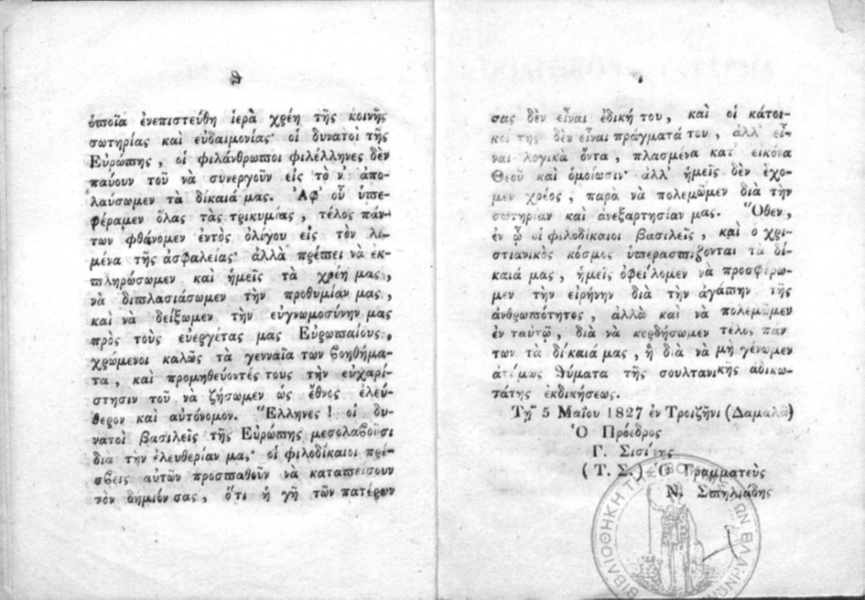 ὁποῖα ἐνεπιστεύθη ἱερὰ χρέη τῆς κοινῆς
σωτηρίας καὶ εὐδαιμονίας· οἱ δυνατοὶ τῆς
Εὐρώπης, οἱ φιλάνθρωποι φιλέλληνες δὲν
παύουν τοῦ νὰ συνεργοῦν εἰς τὸ ν᾽ ἀπο-
λαύσωμεν τὰ δίκαιά μας. Ἀφ᾽ οὗ ὑπε-
φέραμεν ὅλας τὰς τρικυμίας, τέλος πάν-
των φθάνομεν ἐντὸς ὀλίγου εἰς τὸν λι-
μένα τῆς ἀσφαλείας· ἀλλὰ πρέπει νὰ ἐκ-
πληρώσωμεν καὶ ἡμεῖς τὰ χρέη μας,
νὰ διπλασιάσωμεν τὴν προθυμίαν μας,
καὶ νὰ δείξωμεν τὴν εὐγνωμοσύνην μας
πρὸς τοὺς εὐεργέτας μας Εὐρωπαίους,
χρώμενοι καλῶς τὰ γενναῖα των βοηθήμα-
τα, καὶ προμηθεύοντές τους τὴν εὐχαρί-
στησιν τοῦ νὰ ζήσωμεν ὡς ἔθνος ἐλεύ-
θερον καὶ αὐτόνομον. Ἕλληνες! οἱ δυ-
νατοὶ βασιλεῖς τῆς Εὐρώπης μεσολαβοῦσι
διὰ τὴν ἐλευθερίαν μας· οἱ φιλοδίκαιοι πρέ-
σβεις αὐτῶν προσπαθοῦν νὰ καταπείσουν
τὸν δήμιόν σας, ὅτι ἡ γῆ τῶν πατέρων
σας δὲν εἶναι ἐδική του, καὶ οἱ κάτοι-
κοί της δὲν εἶναι πράγματά του, ἀλλ᾽ εἶ-
ναι λογικὰ ὄντα, πλασμένα κατ᾽ εἰκόνα
Θεοῦ καὶ ὁμοίωσιν· ἀλλ᾽ ἡμεῖς δὲν ἔχο-
μεν χρέος, παρὰ νὰ πολεμῶμεν διὰ τὴν
σωτηρίαν καὶ ἀνεξαρτησίαν μας. Ὅθεν,
ἐν ᾧ οἱ φιλοδίκαιοι βασιλεῖς, καὶ ὁ χρι-
στιανικὸς κόσμος ὑπερασπίζονται τὰ δί-
καιά μας, ἡμεῖς ὀφείλομεν νὰ προσφέρω-
μεν τὴν εἰρήνην διὰ τὴν ἀγάπην τῆς
ἀνθρωπότητος, ἀλλὰ καὶ νὰ πολεμῶμεν
ἐν ταὐτῷ, διὰ νὰ κερδήσωμεν τέλος πάν
των τὰ δίκαιά μας, ἢ διὰ νὰ μὴ γένωμεν
ἀτίμως θύματα τῆς σουλτανικῆς ἀδικω-
τάτης ἐκδικήσεως.
Τῇ 5 Μαΐου 1827 ἐν Τροιζῆνι (Δαμαλᾶ)
Ὁ Πρόεδρος
Γ. Σισίνης
(Τ. Σ.) Ὁ Γραμματεὺς
Ν. Σπηλιάδης
ΒΙΒΛΙΟΘΗΚΗ ΤΗΣ ΒΟΥΛΗΣ ΤΩΝ ΕΛΛΗΝΩΝ